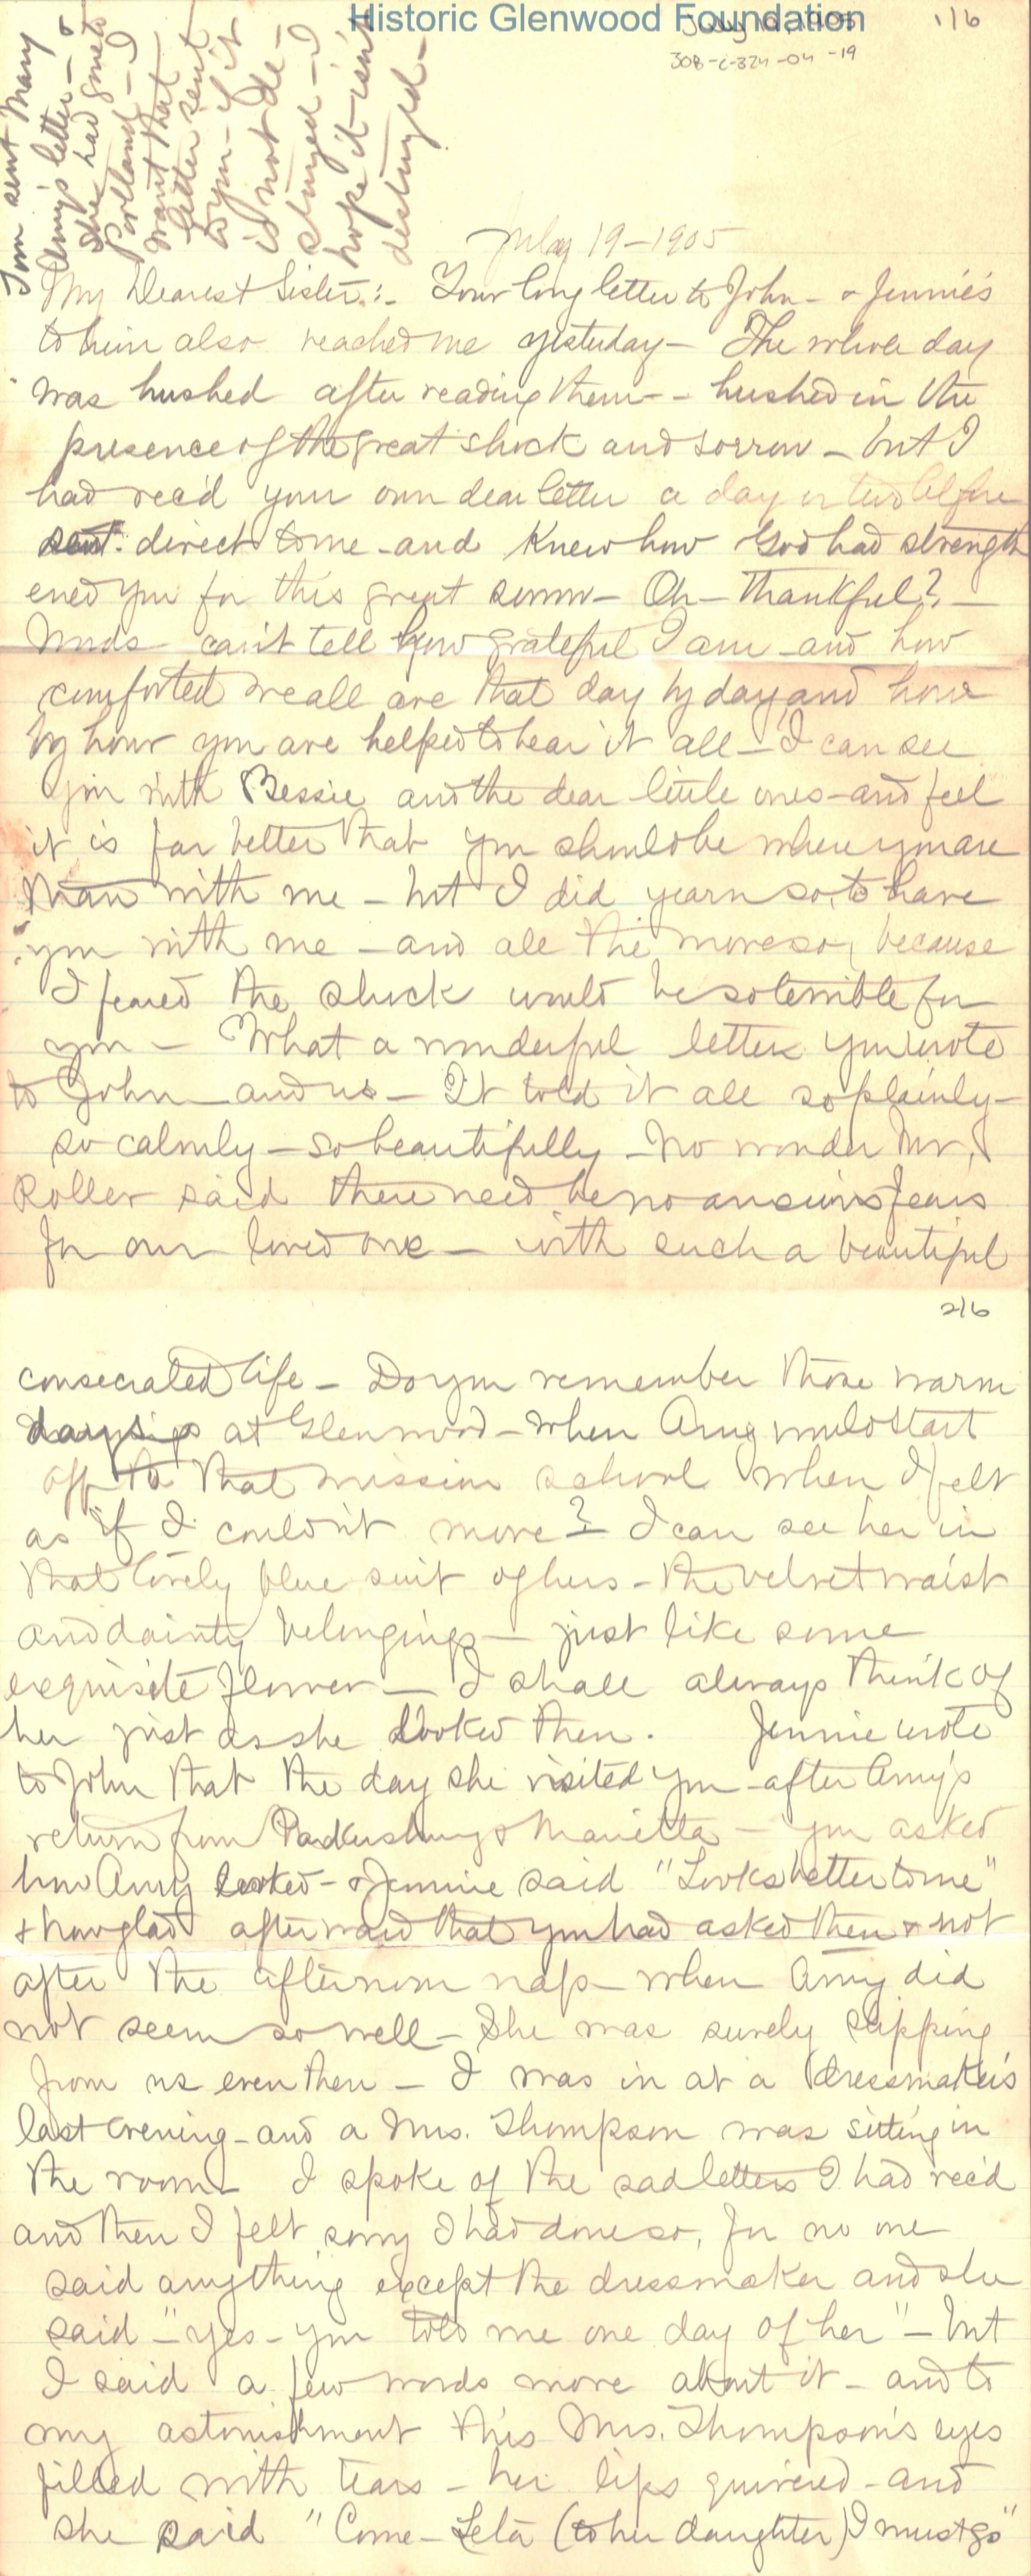 Historic Glenwood Foundation
1/6
308-C-324-04-19
Tom sent Mary
Amy's letter - &
she had gone to
Portland - I
want that
letter sent
to you - if it
is not de-
stroyed - I
hope it isn't
destroyed -
July 19 - 1905
My Dearest Sister:- Your long letter to John - & Jennie's
to him also reached me yesterday - The whole day
was hushed after reading them - - hushed in the
presence of the great shock and sorrow - but I
had rec'd your own dear letter a day or two before
sent direct to me - and knew how God had strength
ened you for this great sorrow - Oh - thankful? -
Words can't tell how grateful I am - and how
comforted we all are that day by day and hour
by hour you are helped to bear it all - I can see
you with Bessie and the dear little ones - and feel
it is far better that you should be where you are
than with me - but I did yearn so, to have
you with me - and all the more so, because
I feared the shock would be so terrible for
you - What a wonderful letter you wrote
to John - and us - It told it all so plainly -
so calmly - so beautifully - No wonder Mr.
Roller said there need be no anxious fears
for our loved one - with such a beautiful
2/6
consecrated life - Do you remember those warm
days at Glenwood - when Amy would start
off to that mission school when I felt
as if I couldn't move? - I can see her in
that lovely blue suit of hers - the velvet waist
and dainty belongings - just like some
exquisite flower - I shall always think of
her just as she looked then. Jennie wrote
to John that the day she visited you - after Amy's
return from Parkersburg & Marietta - you asked
how Amy looked - & Jennie said "Looks better to me"
& how glad afterward that you had asked then & not
after the afternoon nap - when Amy did
not seem so well - She was surely slipping
from us even then - I was in at a dressmaker's
last evening - and a Mrs. Thompson was sitting in
the room - I spoke of the sad letters I had rec'd
and then I felt sorry I had done so, for no one
said anything except the dressmaker and she
said - "yes - you told me one day of her" - but
I said a few words more about it - and to
my astonishment this Mrs. Thompson's eyes
filled with tears - her lips quivered - and
she said "Come - Leta (to her daughter) I must go"